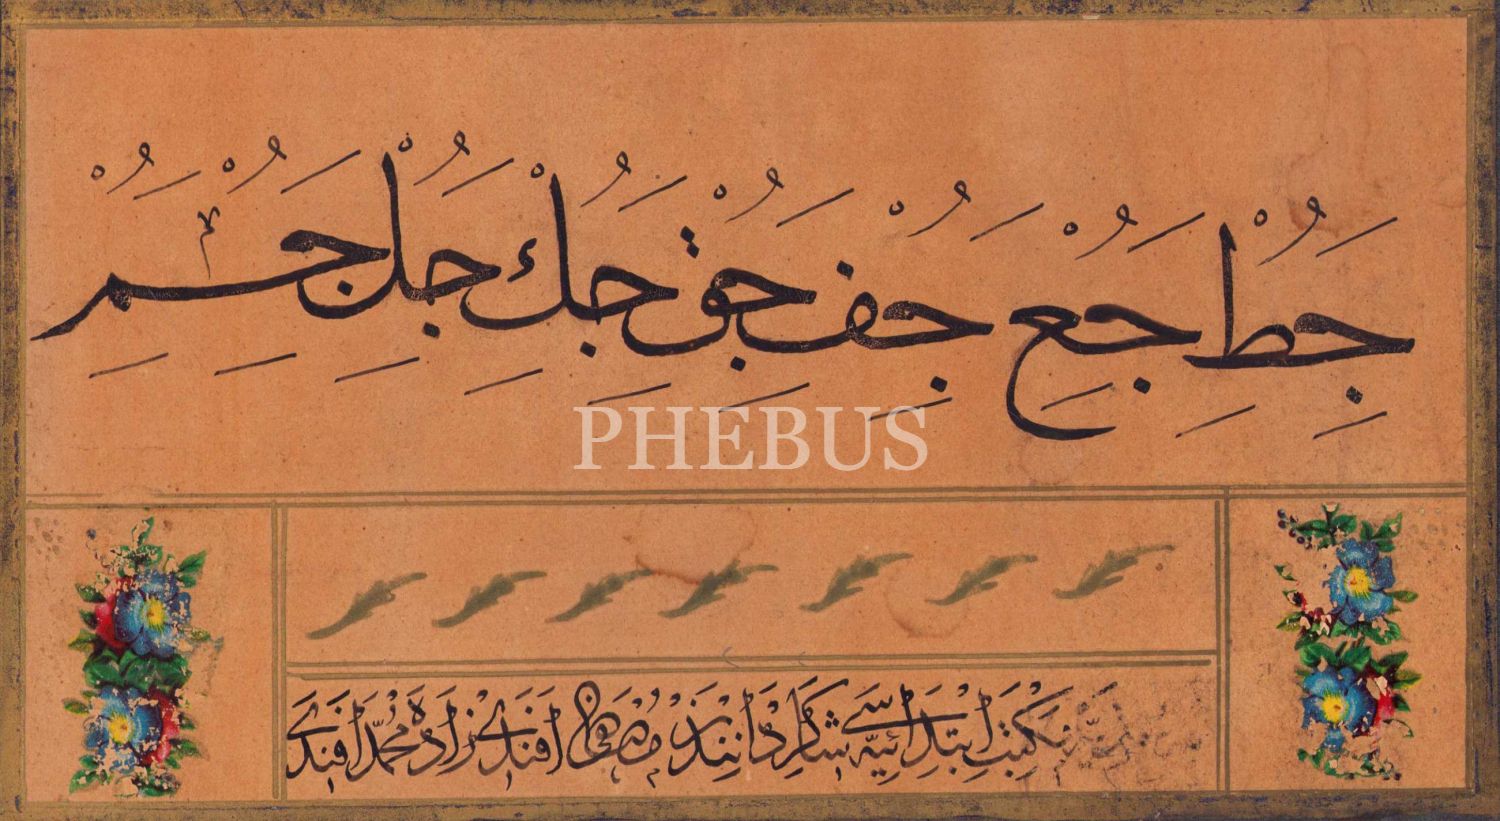 جط جع جف جق جك جل جم
PHEBUS
مكتب ابتدائيه سى شاكرداننندن مصطفى افندى زاده محمد افندى